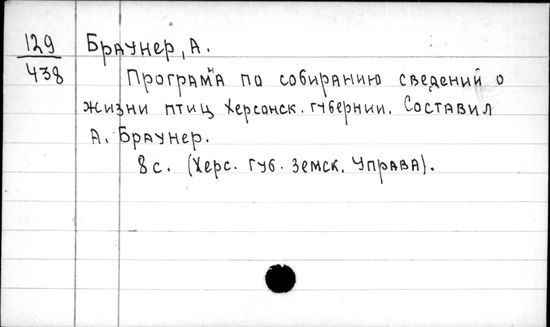 129
438
Браунер, А.
Програма по собиранию сведений о
жизни птиц Херсонск. губернии. Составил
А. Браунер.
8 с. (Херс. губ. земск. управа).